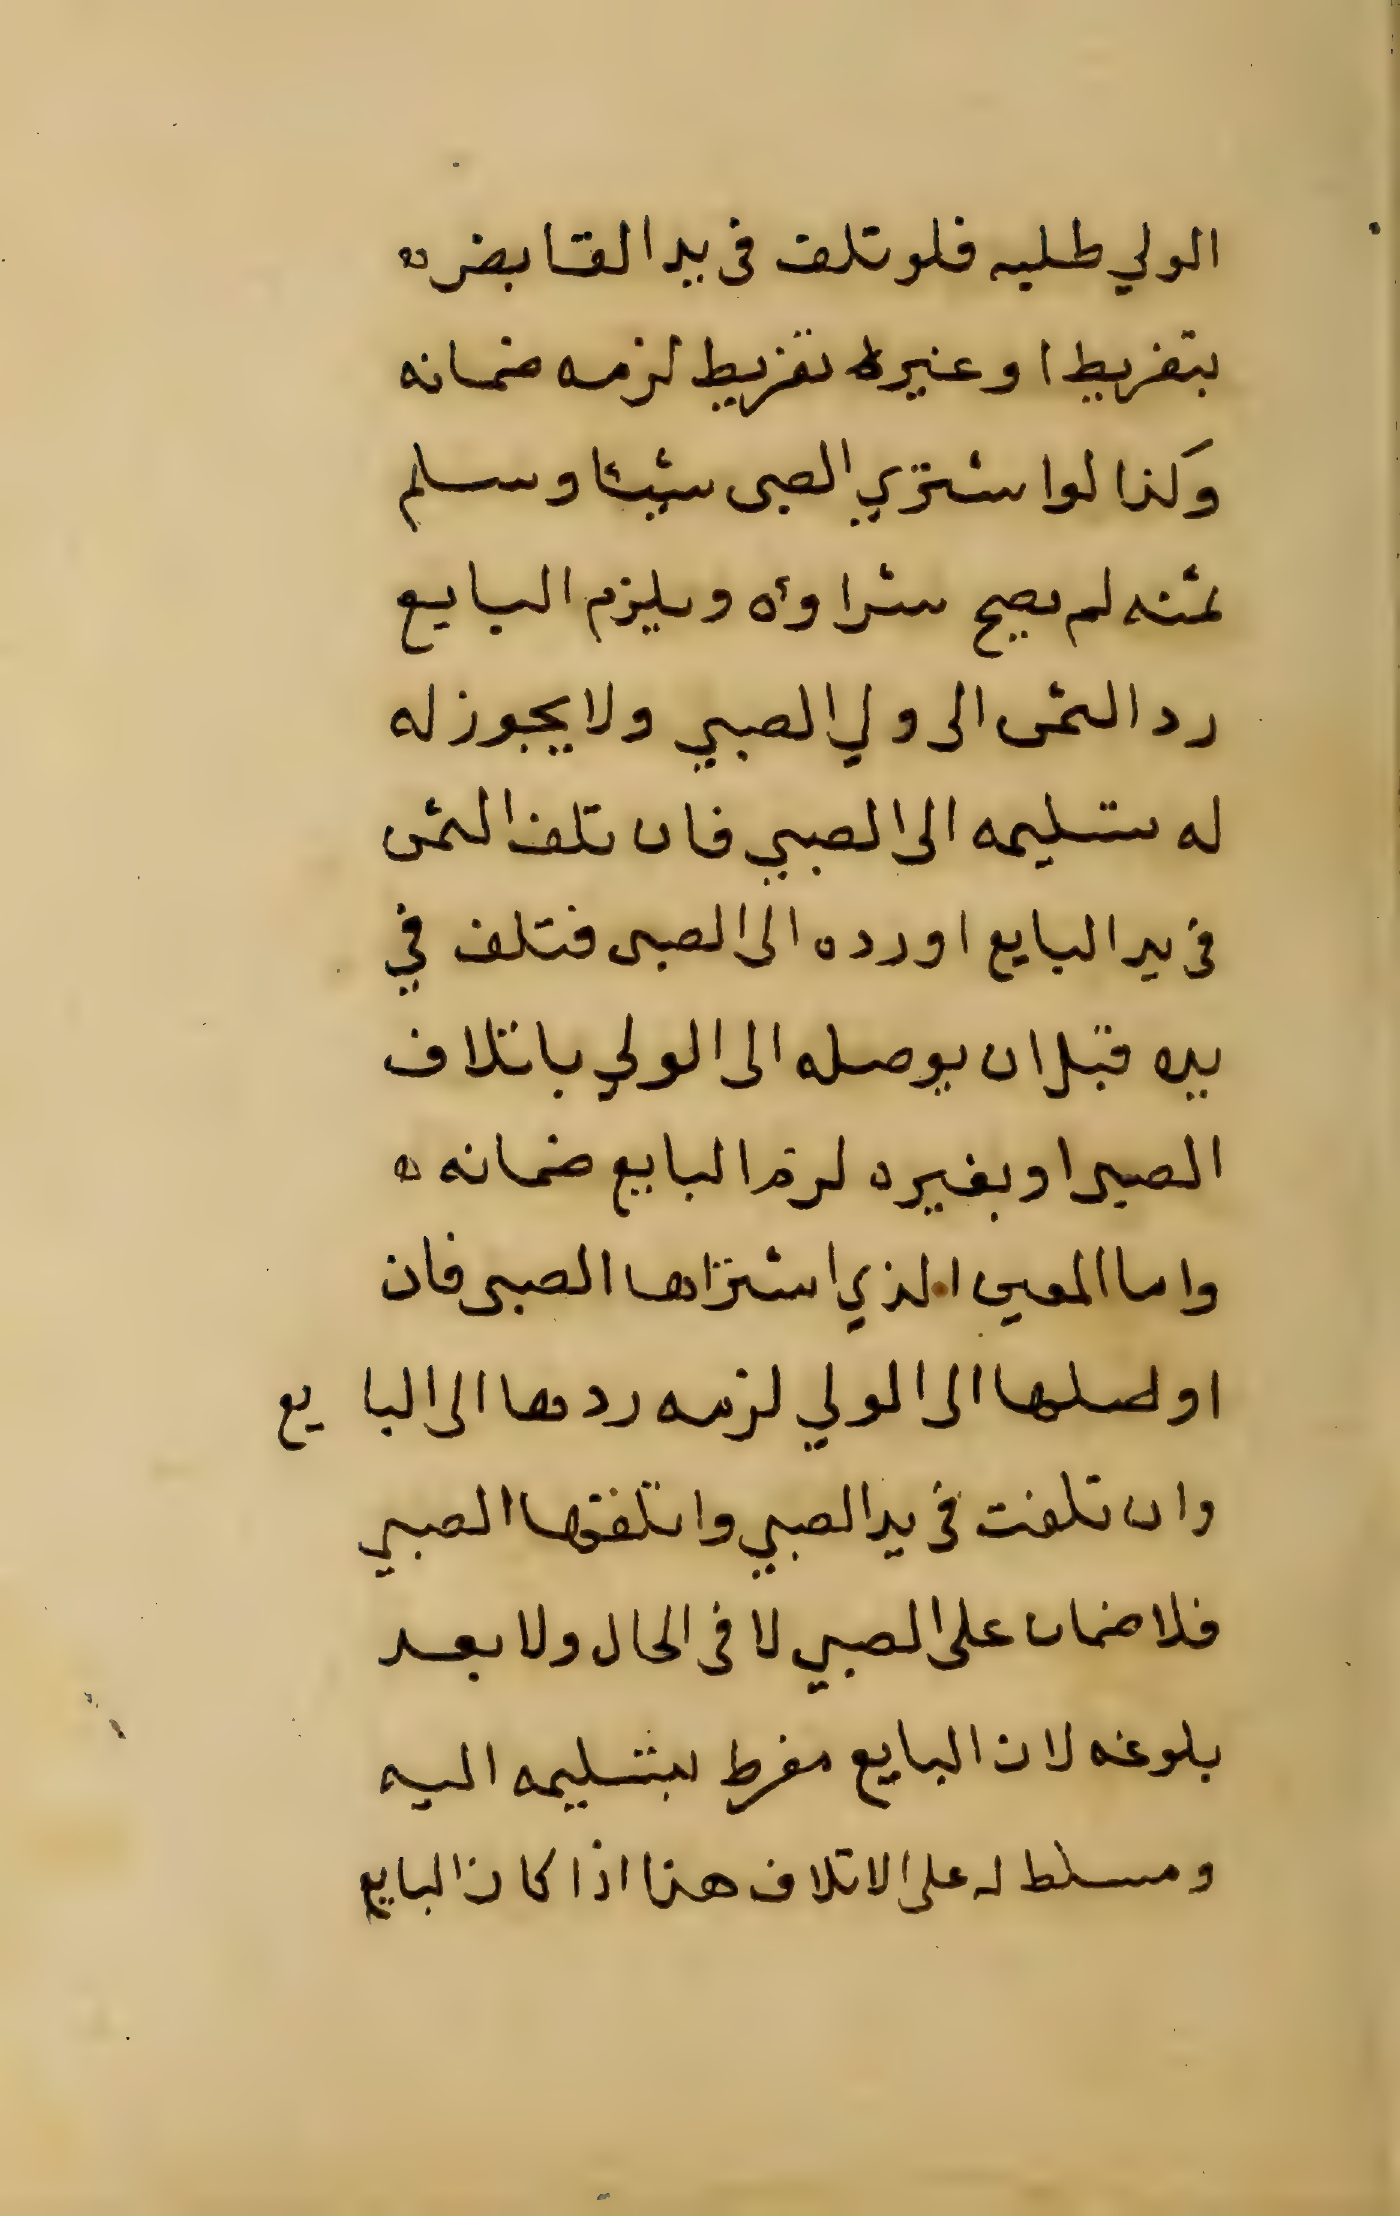 الولي طلبه فلو تلف في يد القابض ه
بتفريط او غيره تفريط لزمه ضمانه
وكذا لو اشتري الصبى شيئا وسلم
ثمنه لم يصح شراوءه ويلزم البايع
رد الثمن الى ولي الصبي ولا يجوز له
له تسليمه الى الصبي فان تلف الثمن
في يد البايع او رده الى الصبى فتلف في
يده قبل ان يوصله الى الولي باتلاف
الصبي او بغيره لزم البايع ضمانه ه
واما العين الذي اشتراها الصبى فان
اوصلها الى الولي لزمه ردها الى البايع
وان تلفت في يد الصبي واتلفتها الصبي
فلا ضمان على الصبي لا في الحال ولا بعد
بلوغه لان البايع مفرط بتسليمه اليه
ومسلط له على الاتلاف هذا اذا كان البايع